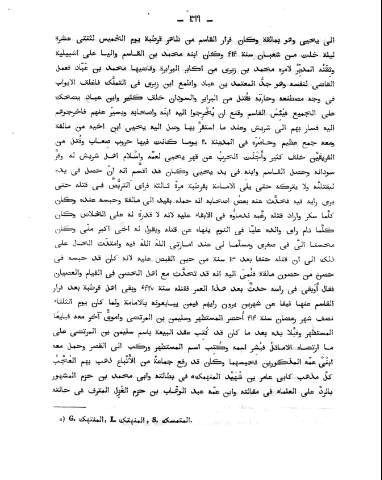 — ٣٢٩ —
الى يحيى وهو بمالقة وكان فرار القاسم من ظاهر قرطبة يوم الخميس لثنتى عشرة
ليلة خلت من شعبان سنة ۴۱۴ وكان ابنه محمد بن القاسم واليا على اشبيلية
وثقته المدبّر لامره محمد بن زيرى من اكابر البرابرة وقاضيها محمد بن عبّاد فعمل
القاضى لنفسه وهو جدّ المعتمد بن عباد واطمع ابن زيرى فى التملك فاغلقت الابواب
فى وجه مصطنعه وحاربه فقُتل من البرابر والسودان خلف كثير وابن عبّاد يضحك
على الجميع فيئس القاسم وقنع ان يُخرجوا اليه ابنه واصحابه ويسير عنهم فاخرجوهم
اليه فسار بهم الى شريش وعند ما استقرّ بها وصل اليه يحيى ابن اخيه من مالقة
ومعه جمع عظيم وحاصره فى المدينة ۲۰ يوما كانت فيها حروب صعاب وقُتل من
الفريقين خلف كثير وأجلت الحرب عن قهر يحيى لعمّه وإسلام اهل شريش له وفرّ
سودانه وحصل القاسم وابنه فى يد يحيى وكان قد اقسم انه ان حصل فى يده
ليقتلنّه ولا يتركه حتى يلى الامامة بقرطبة مرة ثالثة فرأى التربّص فى قتله حتى
يرى رايه فيه فحدّث عنه بعض اصحابه انه حمله بقيد الى مالقة وحبسه عنده وكان
كلّما سكر واراد قتله رغّبه ندماؤه فى الابقاء عليه لانه لا قدرة له على الخلاص وكان
كلّما نام رأى والده عليّا فى النوم ينهاه عن قتله ويقول له اخى اكبر منّى وكان
محسنا الىّ فى صغرى ومسلّما لى عند امارتى اللّه اللّه فيه وامتدّت الحال على
ذلك الى ان قتله خنقا بعد ۱۳ سنة من حين القبض عليه لانه كان قد حبسه فى
حصن من حصون مالقة فنُمى اليه انه قد تحدّث مع اهل الحصن فى القيام والعصيان
فقال أوبقى فى راسه حديث بعد هذا العمر فقتله سنة ۴۲۷ وبقى اهل قرطبة بعد فرار
القاسم عنها نيفا عن شهرين يرون رايهم فيمن يبايعونه بالامامة ولما كان يوم الثلثاء
نصف شهر رمضان سنة ۴۱۴ أحضر المستظهر وسليمن بن المرتضى وأموىّ آخر معه فبايعوا
المستظهر وقبّلا يده بعد ما كان قد كُتب عقد البيعة باسم سليمن بن المرتضى على
ما ارتضاه الاماثل فبُشر اسمه وكُتب اسم المستظهر وركب الى القصر وحمل معه
ابنَىْ عمّه المذكورين فحبسهما وكان قد رفع جماعة من الأتباع ذهب بهم العُجب
كلّ مذهب كابى عامر بن شُهَيْد المنهمك فى بطالته وابى محمد بن حزم المشهور
بالردّ على العلماء فى مقالته وابن عمه عبد الوهّاب بن حزم الغَزِل المترف فى حالته
a) G. المنهمك, L. المنهتك, S. المتمسك.